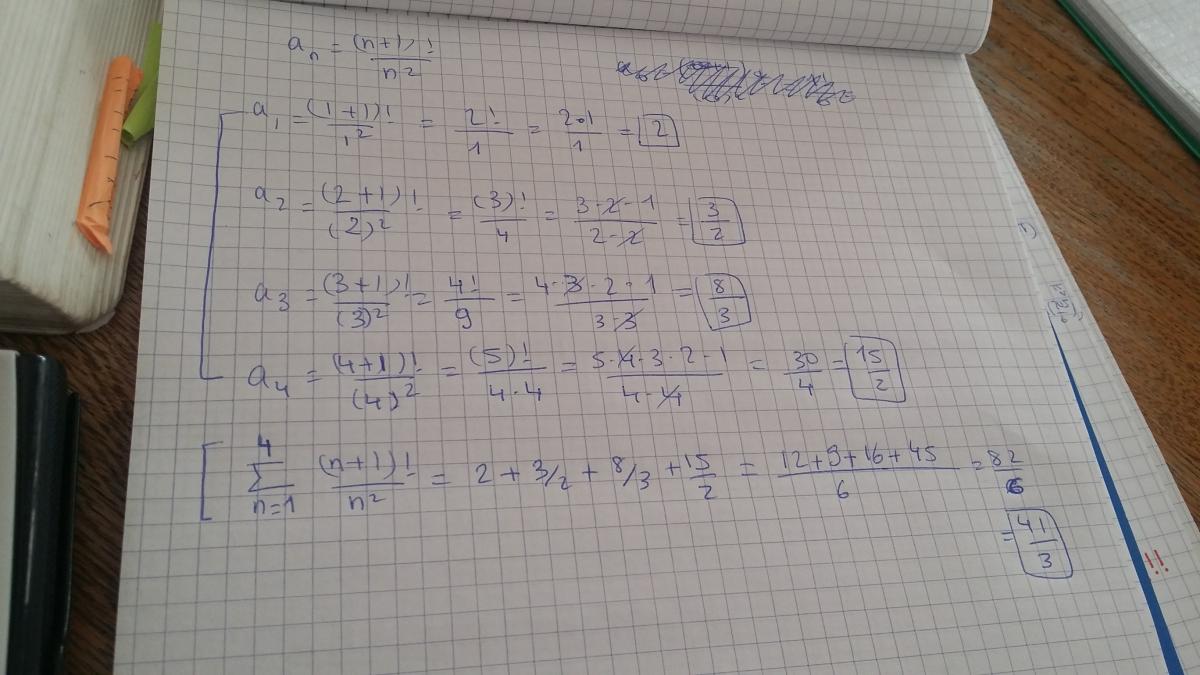 a_n = (n+1)! / n²
a_1 = (1+1)! / 1² = 2! / 1 = 2·1 / 1 = 2
a_2 = (2+1)! / (2)² = (3)! / 4 = 3·2·1 / 2·2 = 3/2
a_3 = (3+1)! / (3)² = 4! / 9 = 4·3·2·1 / 3·3 = 8/3
a_4 = (4+1)! / (4)² = (5)! / 4·4 = 5·4·3·2·1 / 4·4 = 30/4 = 15/2
4 Σ n=1 (n+1)! / n² = 2 + 3/2 + 8/3 + 15/2 = 12+9+16+45 / 6 = 82/6
= 41/3
!!